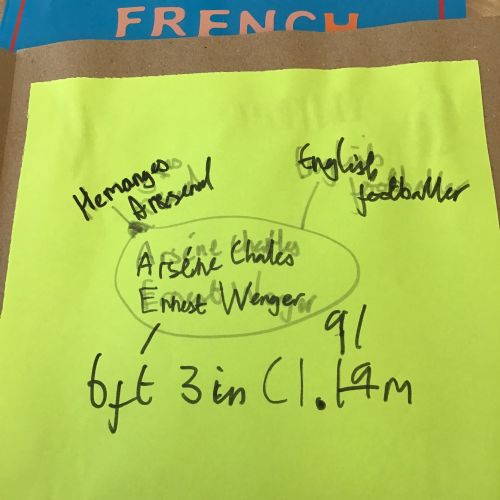 FRENCH
Hemanges
Arsenal
English
footballer
Arséne Chales
Ernest Wenger
91
6ft 3in (1.19m